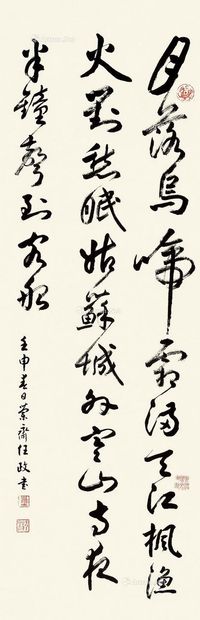 月落烏啼霜满天江枫渔
火對愁眠姑蘇城外寒山寺夜
半鐘聲到客船
壬申春日蘭齋任政书